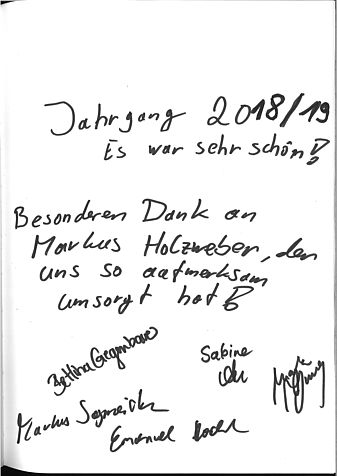 Jahrgang 2018/19
Es war sehr schön!
Besonderen Dank an
Markus Holzweber, der
uns so aufmerksam
umsorgt hat!
Bettina Gegenbauer
Sabine
Markus
Emanuel